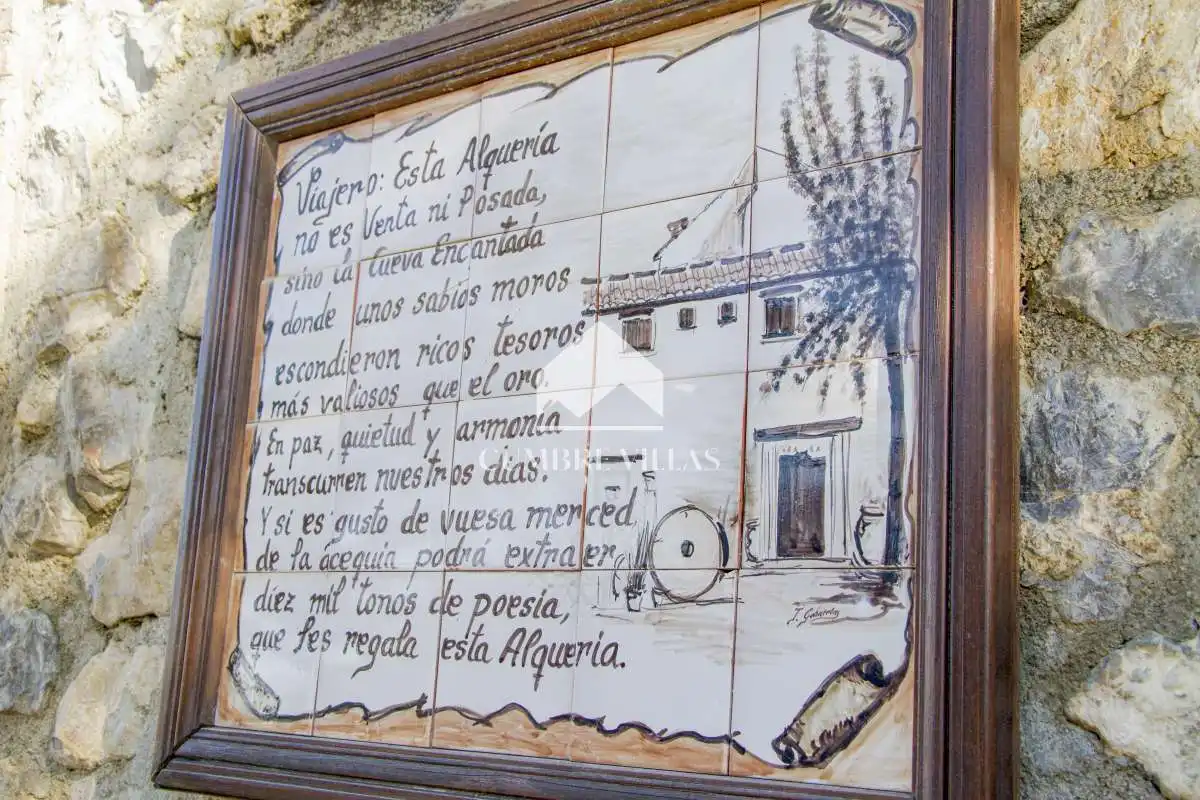 Viajero: Esta Alquería
no es Venta ni Posada,
sino la Cueva Encantada
donde unos sabios moros
escondieron ricos tesoros
más valiosos que el oro.
En paz, quietud y armonía
transcurren nuestros días.
Y si es gusto de vuesa merced,
de la acequia podrá extraer
diez mil tonos de poesía,
que les regala esta Alqueria.
CUMBRE VILLAS